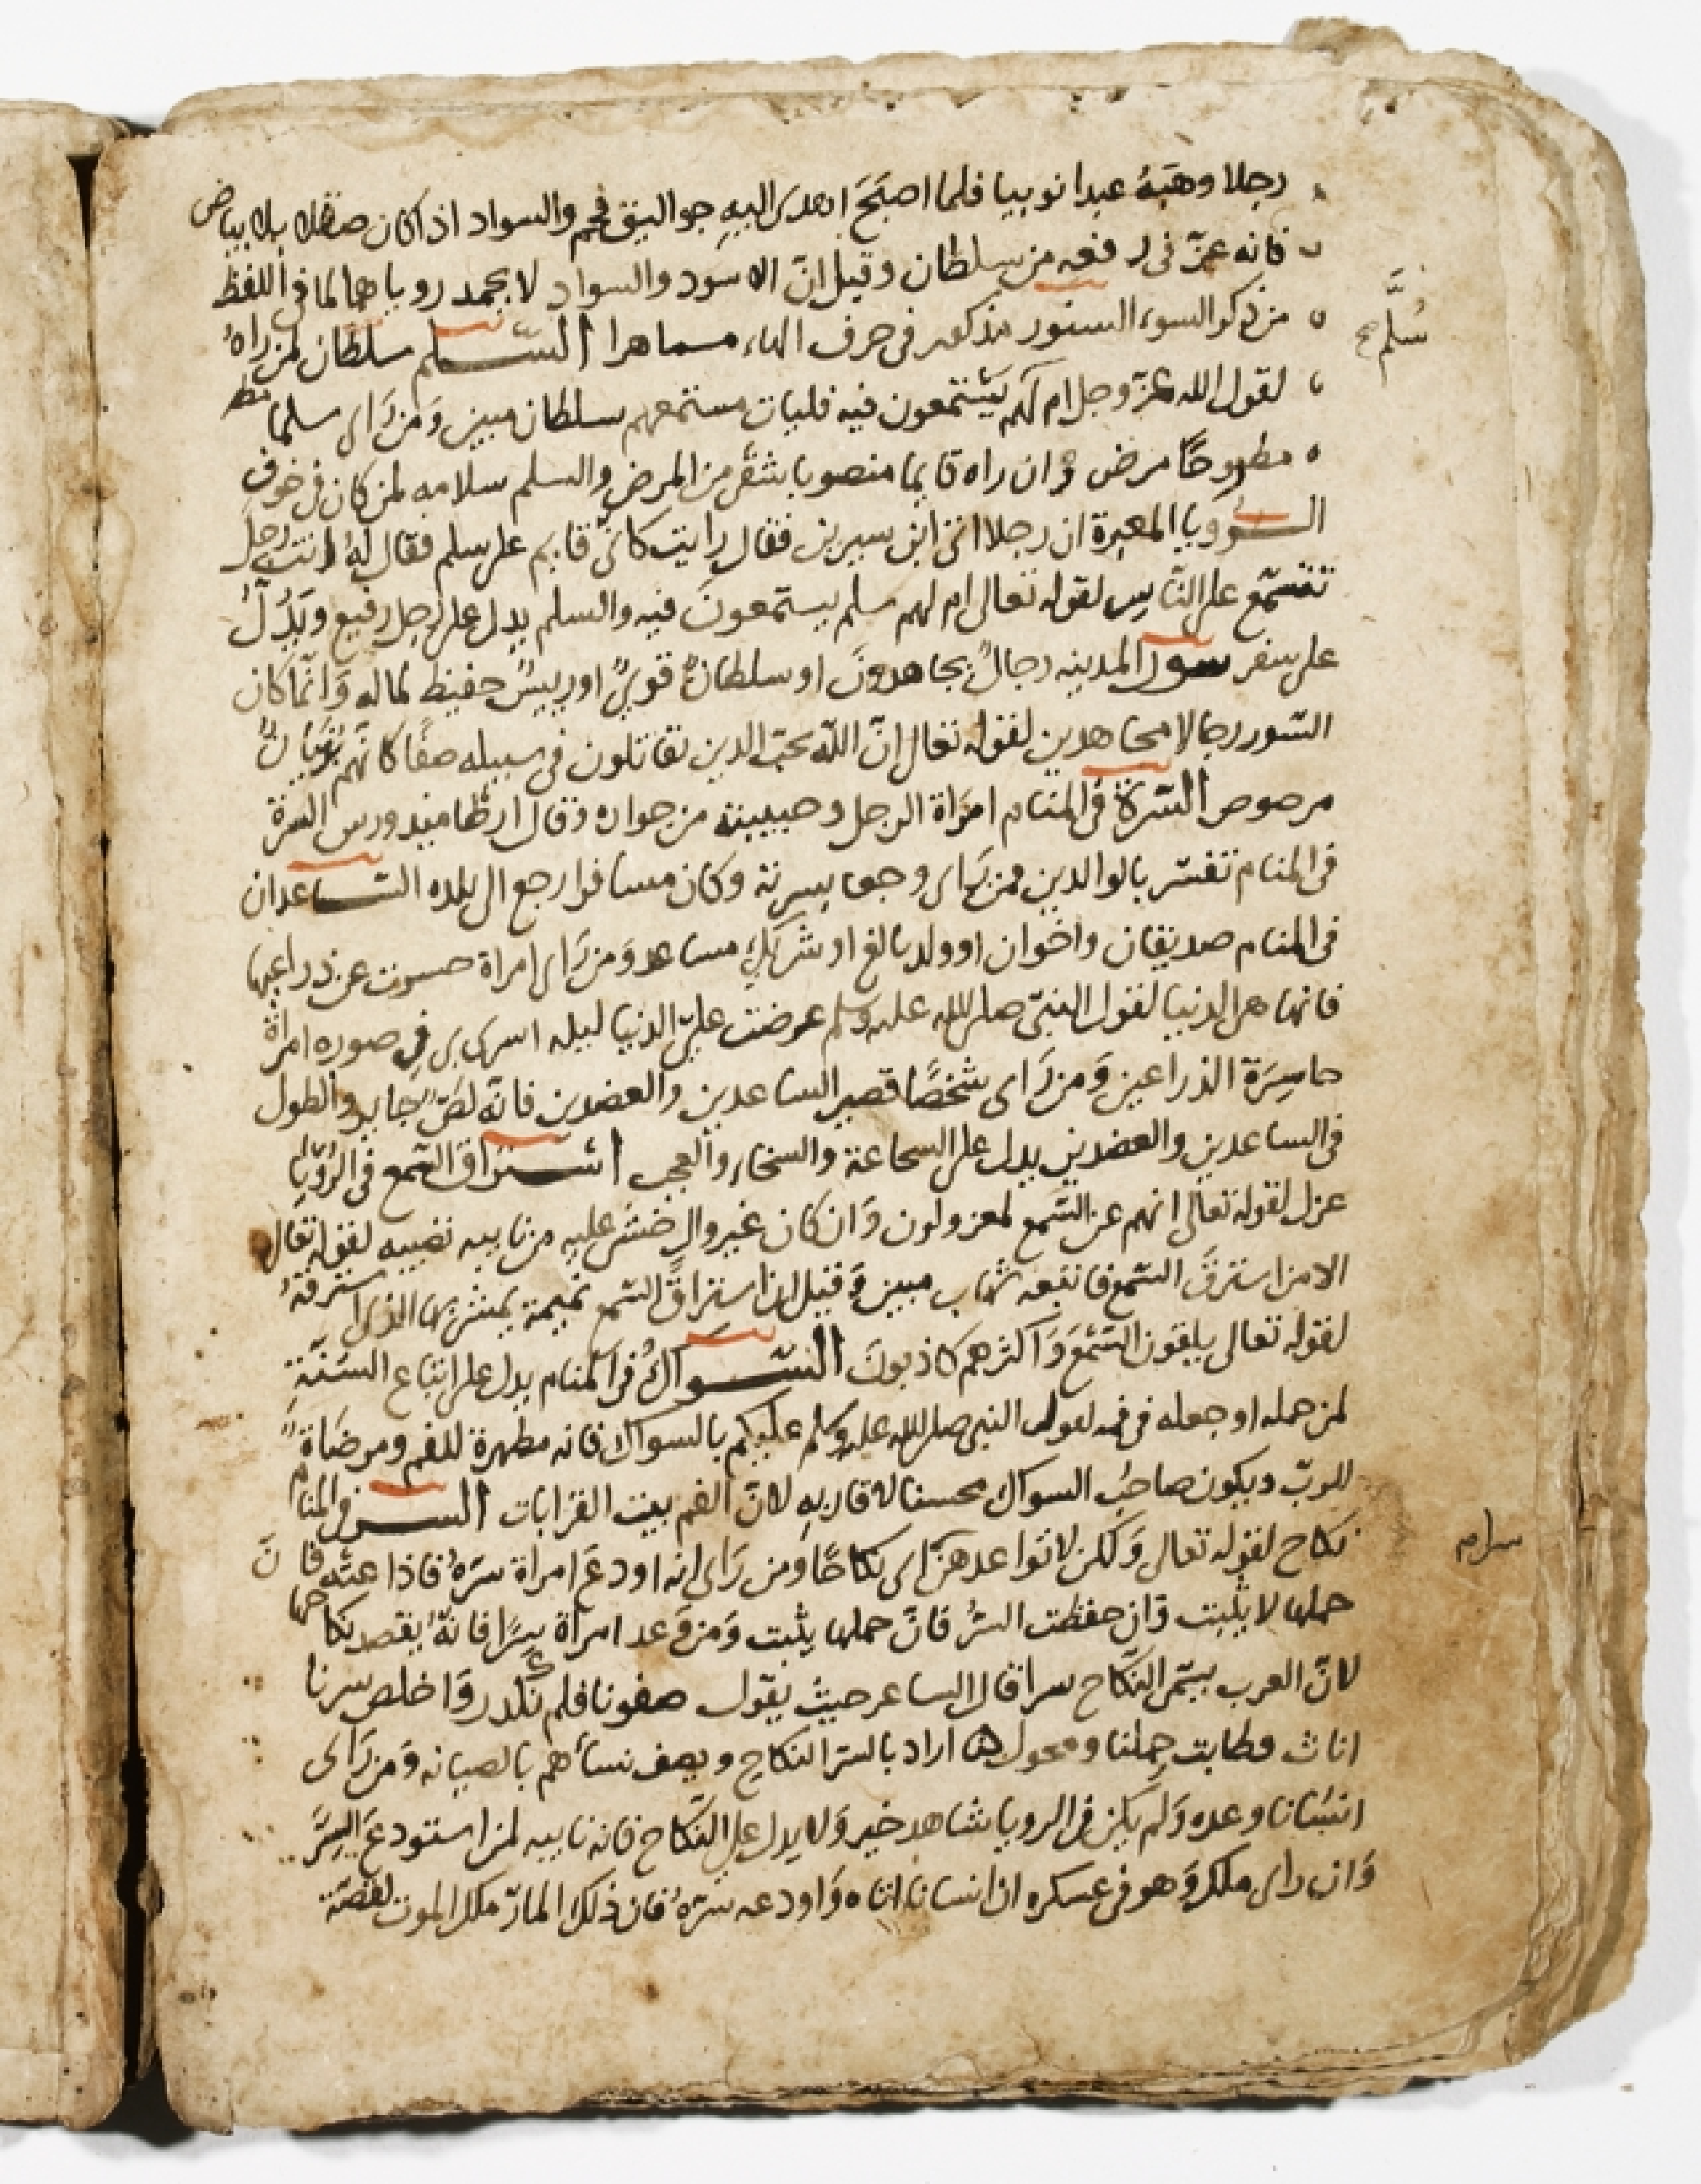 رجلا وهبه عبدا نوبيا فلما اصبح اهدى اليه جواليق فحم والسواد اذا كان صقلا بلا بياض
فانه عز في رفعه من سلطان وقيل ان الاسود والسواد لا يحمد روياهما لما في اللفظ
من ذكر السوء السنور مذكور في حرف الهاء السلم سلطان لمن راه
سلم
لقول الله عز وجل ام لهم يستمعون فيه فليات مستمعهم سلطان مبين ومن راى سلما
مطروحا مرض وان راه قايما منصوبا شفى من المرض والسلم سلامه لمن كان في خوف
الرويا المعبرة ان رجلا اتى ابن سيرين فقال رايت كاني قايم على سلم فقال له انت رجل
تتسمع على الناس لقوله تعالى ام لهم سلم يستمعون فيه والسلم يدل على رجل رفيع ويدل
على سفر سور المدينه رجال يجاهدون او سلطان قوي او رييس حفيظ لماله وانما كان
السور رجالا مجاهدين لقوله تعالى ان الله يحب الدين يقاتلون في سبيله صفا كانهم بنيان
مرصوص السرة في المنام امراة الرجل وحبيبته من جواره وقال ارطاميدورس السرة
في المنام تفسر بالوالدين فمن راى وجعا بسرته وكان مسافرا رجع الى بلده الساعدان
في المنام صديقان واخوان او ولد بالغ او شريك مساعد ومن راى امراة حسرت عن ذراعيها
فانها هي الدنيا لقول النبي صلى الله عليه وسلم عرضت علي الدنيا ليله اسرى بى في صوره امراة
حاسرة الذراعين ومن راى شخصا قصير الساعدين والعضدين فانه لص والطول
في الساعدين والعضدين يدل على السجاعة والسخاء والعجب استراق السمع في الرويا
عزل لقوله تعالى انهم عن السمع لمعزولون وان كان غير وال خشى عليه من نايبه تصيبه لقوله تعالى
الا من استرق السمع فاتبعه شهاب مبين وقيل ان استراق السمع نميمة يمشى بها الذي استرقه
لقوله تعالى يلقون السمع واكثرهم كاذبون السواك في المنام يدل على اتباع السنة
لمن حمله او جعله في فمه لقول النبي صلى الله عليه وسلم عليكم بالسواك فانه مطهرة للفم ومرضاة
للرب ويكون صاحب السواك محسنا لاقاربه لان الفم بيت القرابات السر في المنام
نكاح لقوله تعالى ولكن لا تواعدهن اى نكاحا ومن راى انه اودع امراة سره فاذا فان
سلام
حملها لا يثبت وان حفظت السر فان حملها يثبت ومن وعد امراة سرا فانه يقصد نكاحها
لان العرب تسمى النكاح سرا قال الساعر حيث يقول صفونا فلم نكدر واخلص سرنا
اناث وطابت حملنا وفحول اراد بالسر النكاح ويصف نساهم بالصيانه ومن راى
انسانا وعده ولم يكن في الرويا شاهد خير ولا يدل على النكاح فانه نايبه لمن استودع السر
وان راى ملك وهو في عسكره ان انسانا اتاه واودعه سره فان ذلك المار ملك الموت لقصة